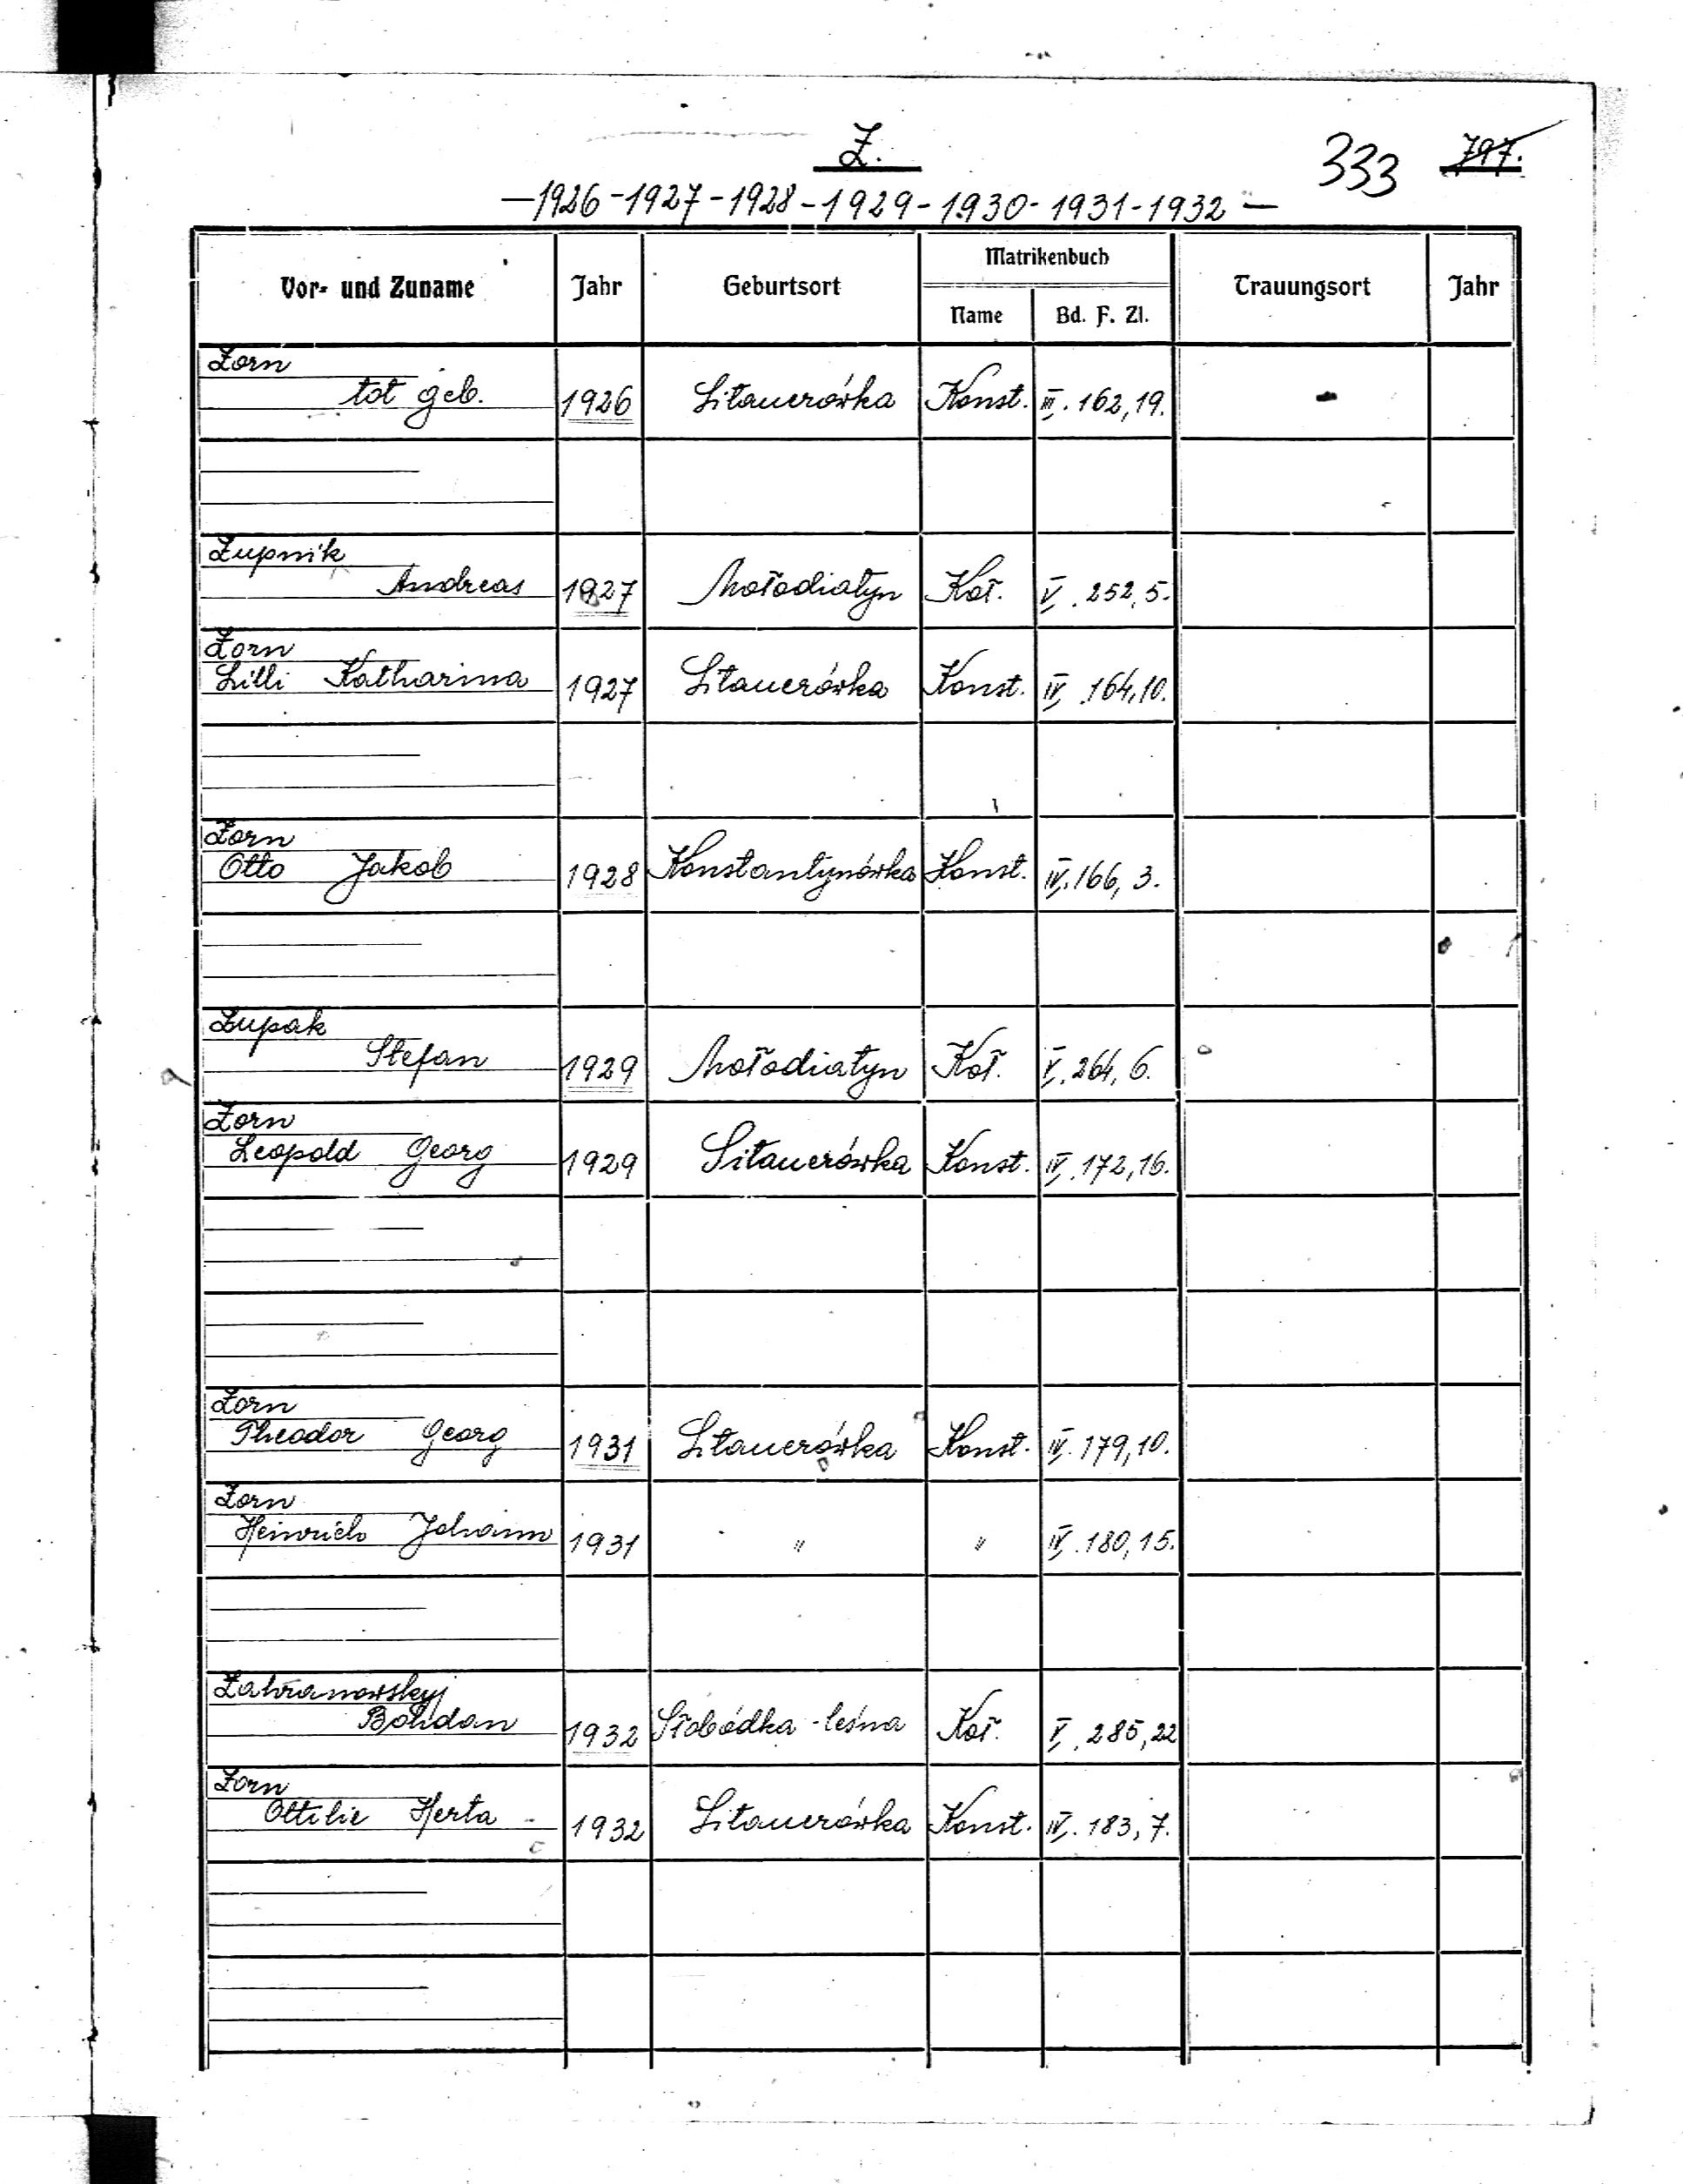 Z.
333 797.
—1926-1927-1928-1929-1930-1931-1932—
Vor- und Zuname Jahr Geburtsort Matrikenbuch Trauungsort Jahr
Name Bd. F. Zl.
Zorn
tot geb. 1926 Sitauerówka Konst. III. 162, 19. -
Zupnik
Andreas 1927 Mołodiatyn Koł. V. 252, 5.
Zorn
Lilli Katharina 1927 Sitauerówka Konst. IV. 164, 10.
Zorn
Otto Jakob 1928 Konstantynówka Konst. IV. 166, 3.
Zupak
Stefan 1929 Mołodiatyn Koł. V. 264, 6.
Zorn
Leopold Georg 1929 Sitauerówka Konst. IV. 172, 16.
Zorn
Theodor Georg 1931 Sitauerówka Konst. IV. 179, 10.
Zorn
Heinrich Johann 1931 " " IV. 180, 15.
Bohdan 1932 Słobódka-leśna Koł. V. 285, 22
Zorn
Ottilie Herta 1932 Sitauerówka Konst. IV. 183, 7.